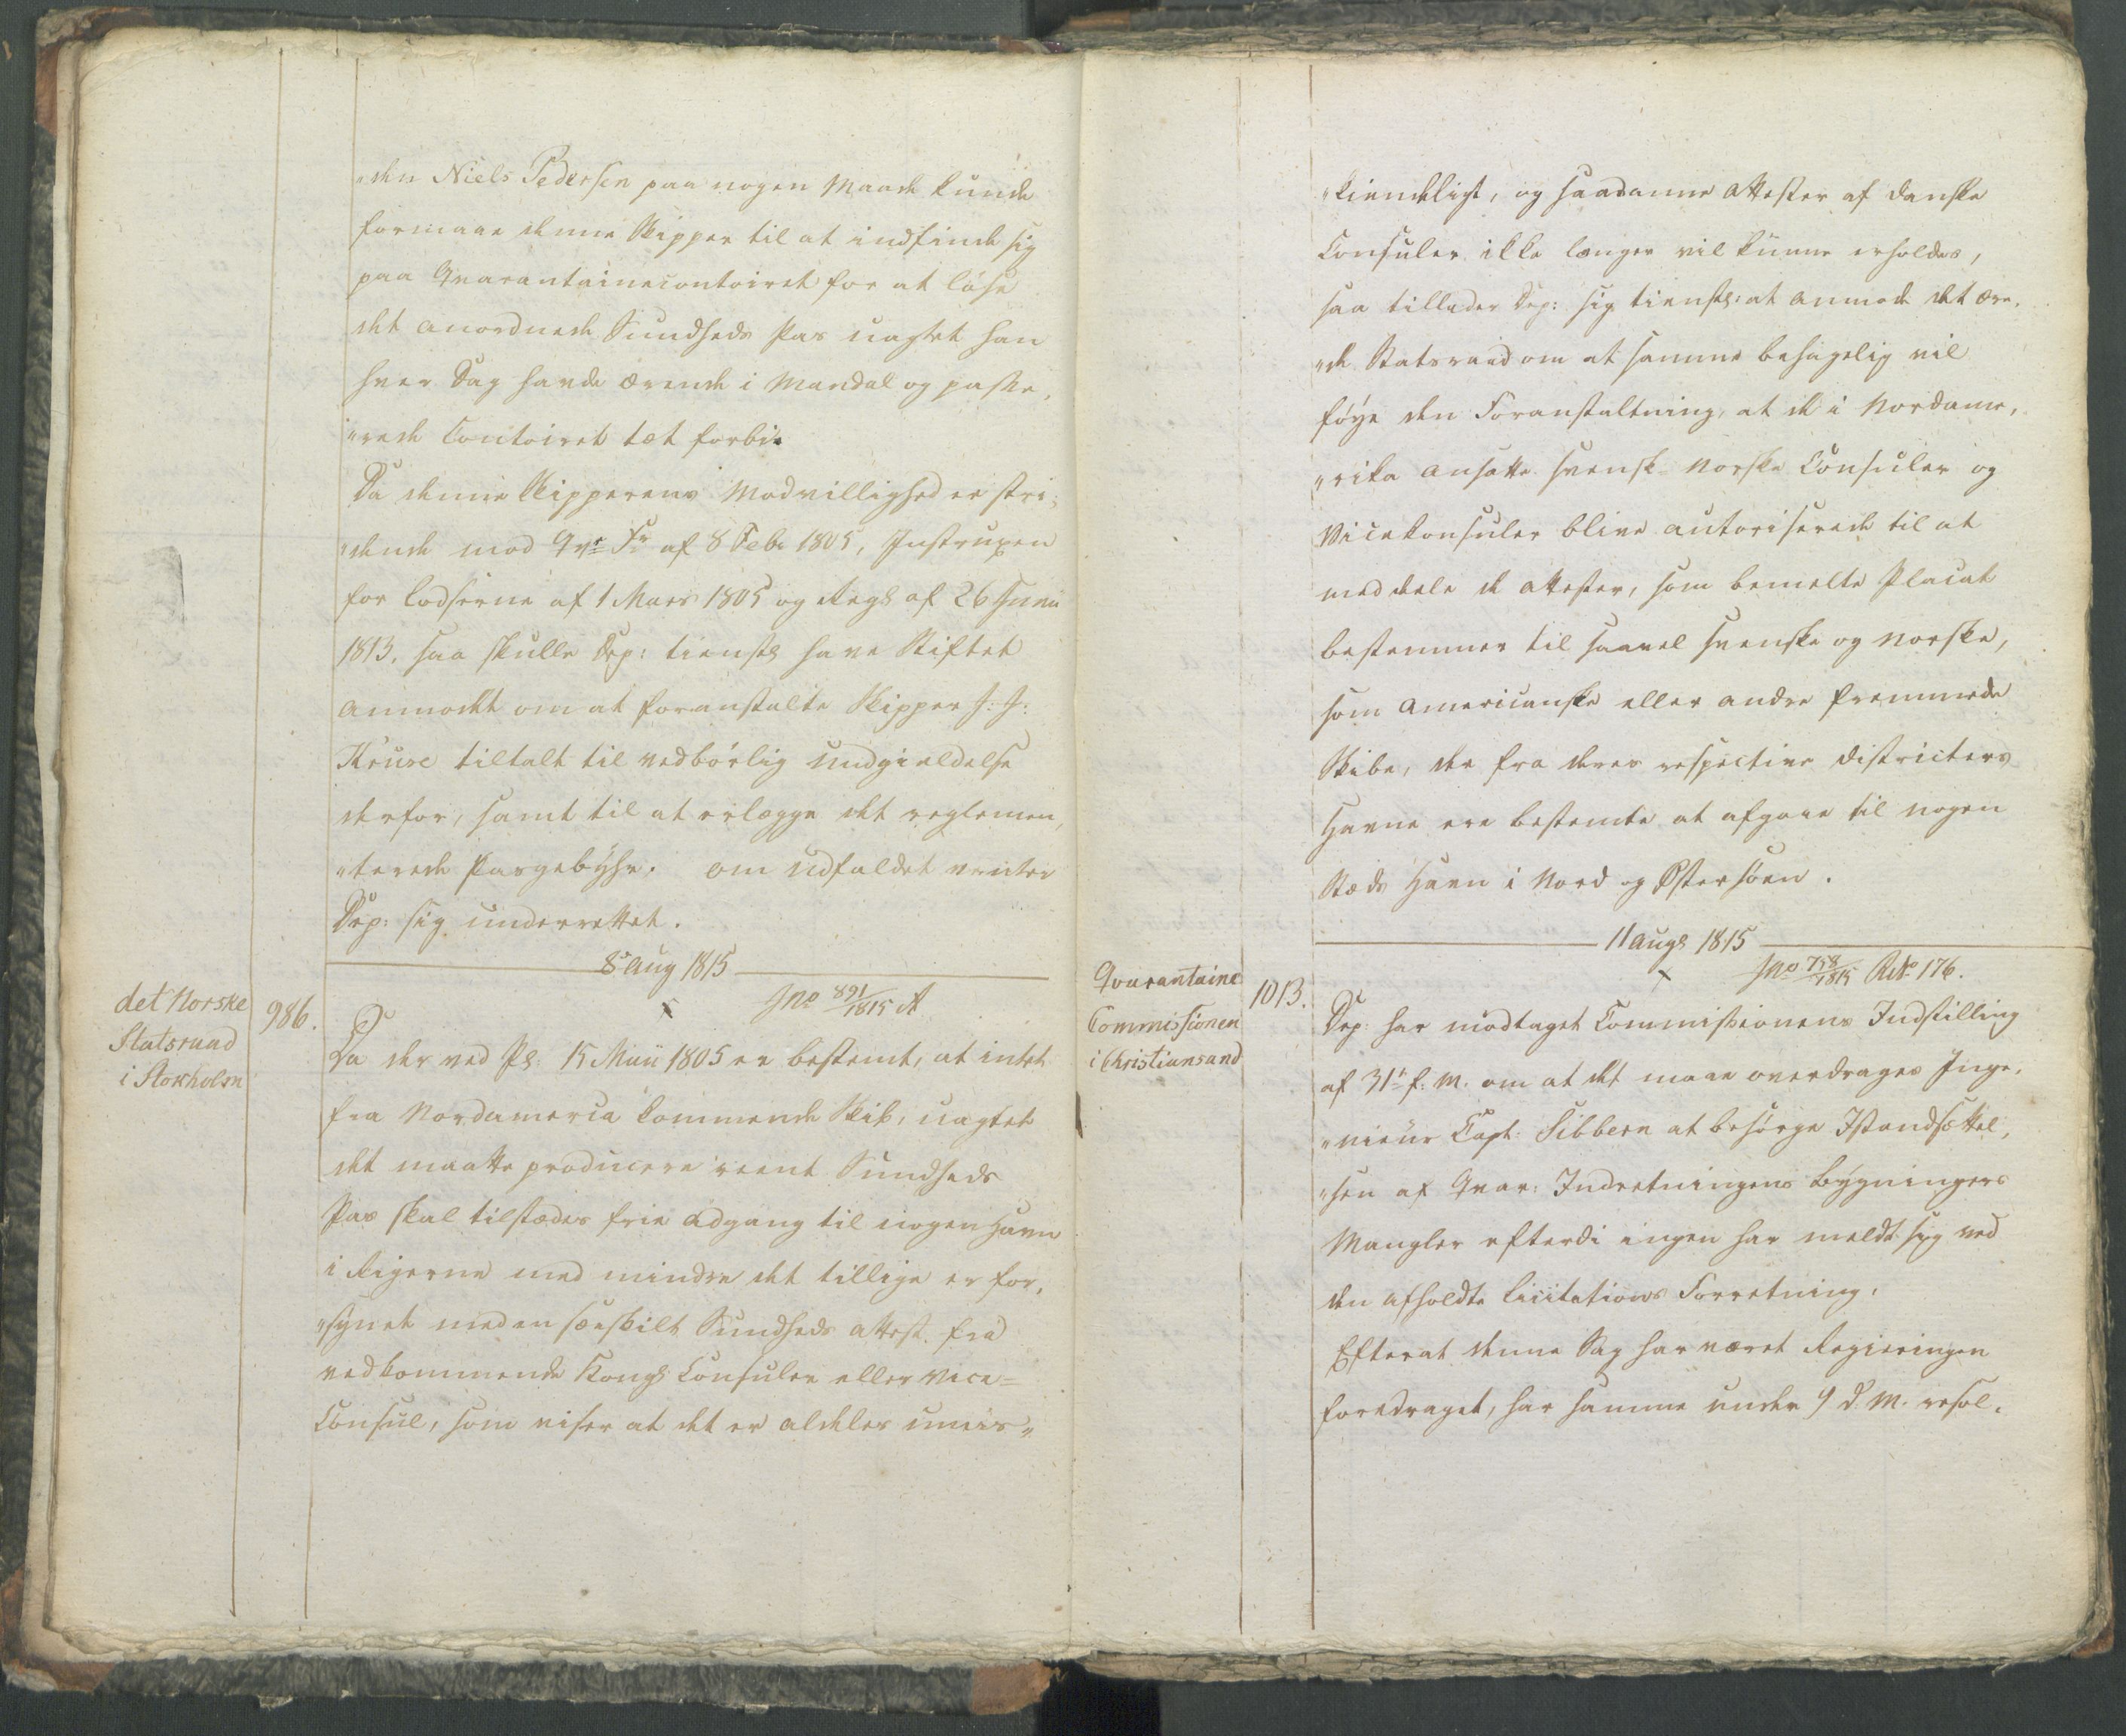 "den Niels Pedersen paa nogen Maade kunde
formaae denne Skipper til at indfinde sig
paa Qvarantainecontoiret for at löse
det anordnede Sundheds Pas uagtet han
hver Dag havde Ærende i Mandal og passe,
"rede Contoiret tæt forbi.
Da denne Skipperens Modvillighed er stri,
"dende mod Qvr Fr af 8 Febr 1805, Instruxen
for Lodserne af 1 Mars 1805 og Regl af 26 Juni
1813, saa skulle Dep: tienstl have Stiftet
anmodet om at foranstalte Skipper J: J:
Kruse tiltalt til vedbörlig Undgieldelse
derfor, samt til at erlægge det reglemen,
"terede Pasgebyhr. om Udfaldet venter
Dep: sig underrettet.
8 Aug 1815
Jno 891/1815 A
det Norske
Statsraad
i Stokholm
986.
Da der ved Pl: 15 Maii 1805 er bestemt, at intet
fra Nordamerica kommende Skib, uagtet
det maatte producere reent Sundheds
Pas skal tilstædes frie Adgang til nogen Havn
i Rigerne med mindre det tillige er for,
"synet med en særskilt Sundheds Attest fra
vedkommende Kongl: Consuler eller Vice=
Consul, som viser at det er aldeles umis,,
"kiendeligt, og saadanne Attester af danske
Consuler ikke længer vil kunne erholdes,
saa tillader Dep: sig tienstl: at anmode det ære,
"de Statsraad om at samme behagelig vil
föye den Foranstaltning, at de i Nordame,
"rika ansatte svensk-norske Consuler og
Vicekonsuler blive autoriserede til at
meddele de Attester, som bemelte Placat
bestemmer til saavel svenske og norske,
som americanske eller andre fremmede
Skibe, der fra deres respective Districters
Havne ere bestemte at afgaae til nogen
Stæds Havn i Nord og Östersöen.
11 Augl 1815
Jno 758/1815 R No 176.
Qvarantaine
Commissionen
i Christiansand
1013.
Dep: har modtaget Commissionens Indstilling
af 31t f: M. om at det maae overdrages Inge,
"nieur Capt: Sibbern at besörge Istandsættel,
"sen af Qvar: Indretningens Bygningers
Mangler efterdi ingen har meldt sig ved
den afholdte Licitations Forretning.
Efterat denne Sag har været Regieringen
foredraget, har samme under 9 d. M. resol,